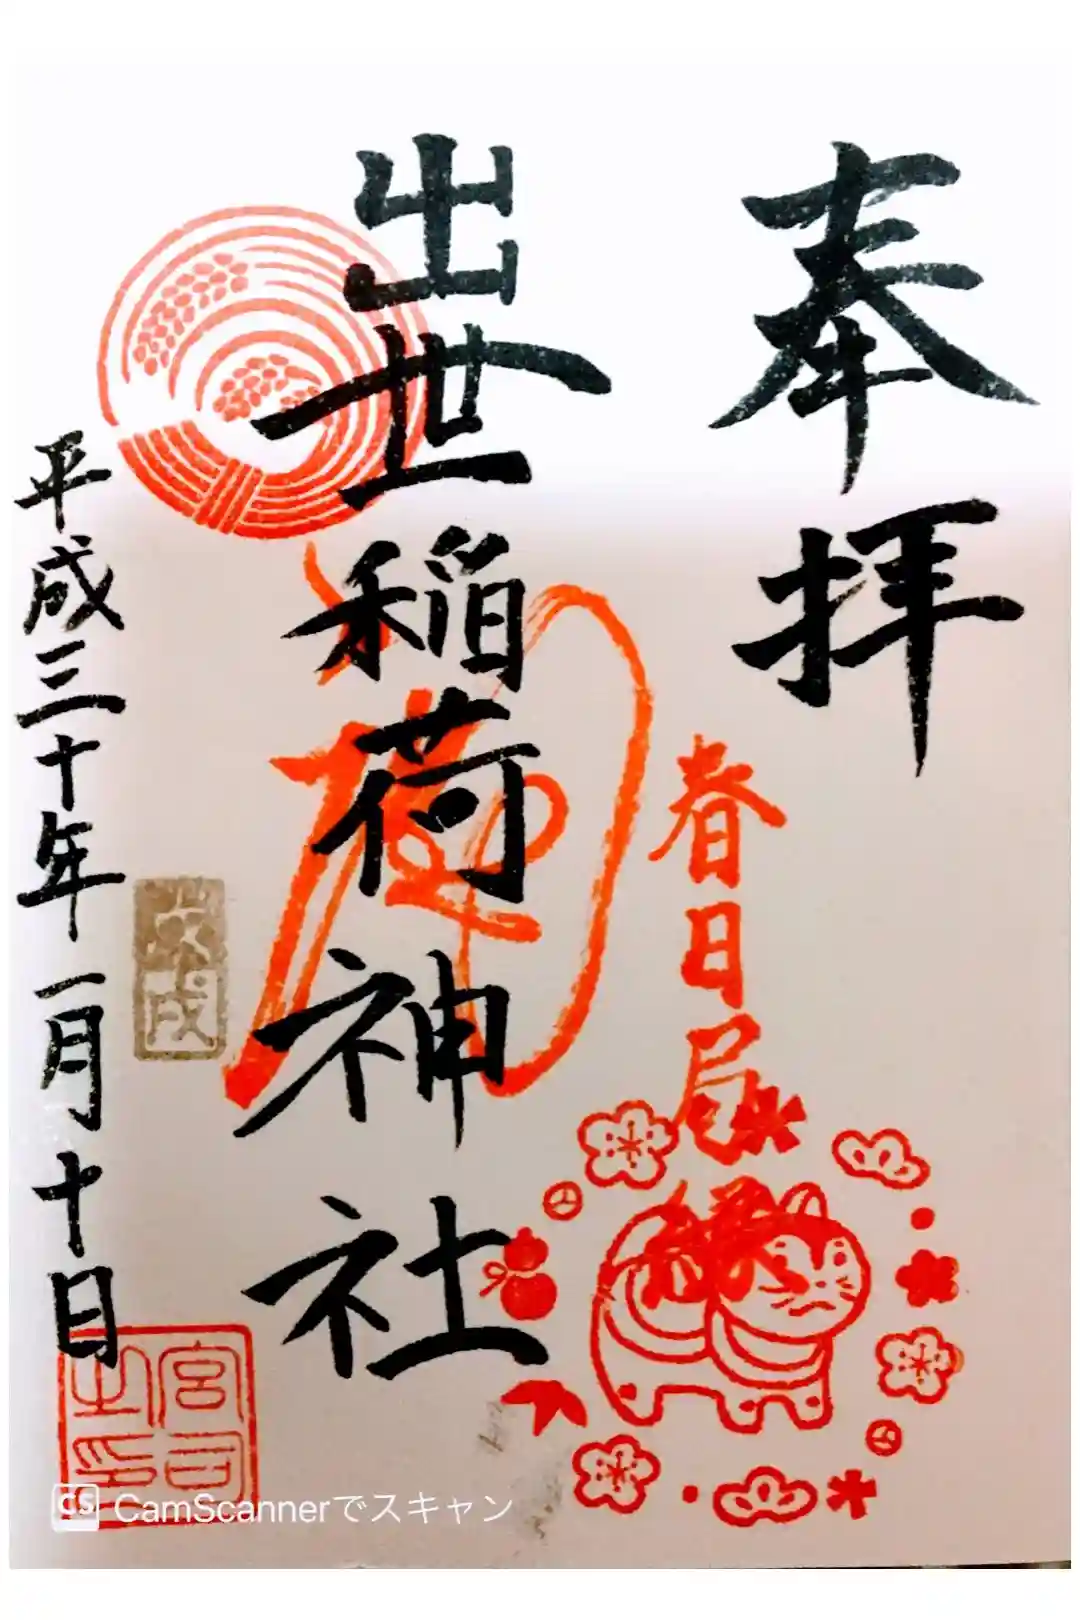 奉拝
春日局縁
出世稲荷神社
戊戌
平成三十年一月十日
宮司之印
CS CamScannerでスキャン